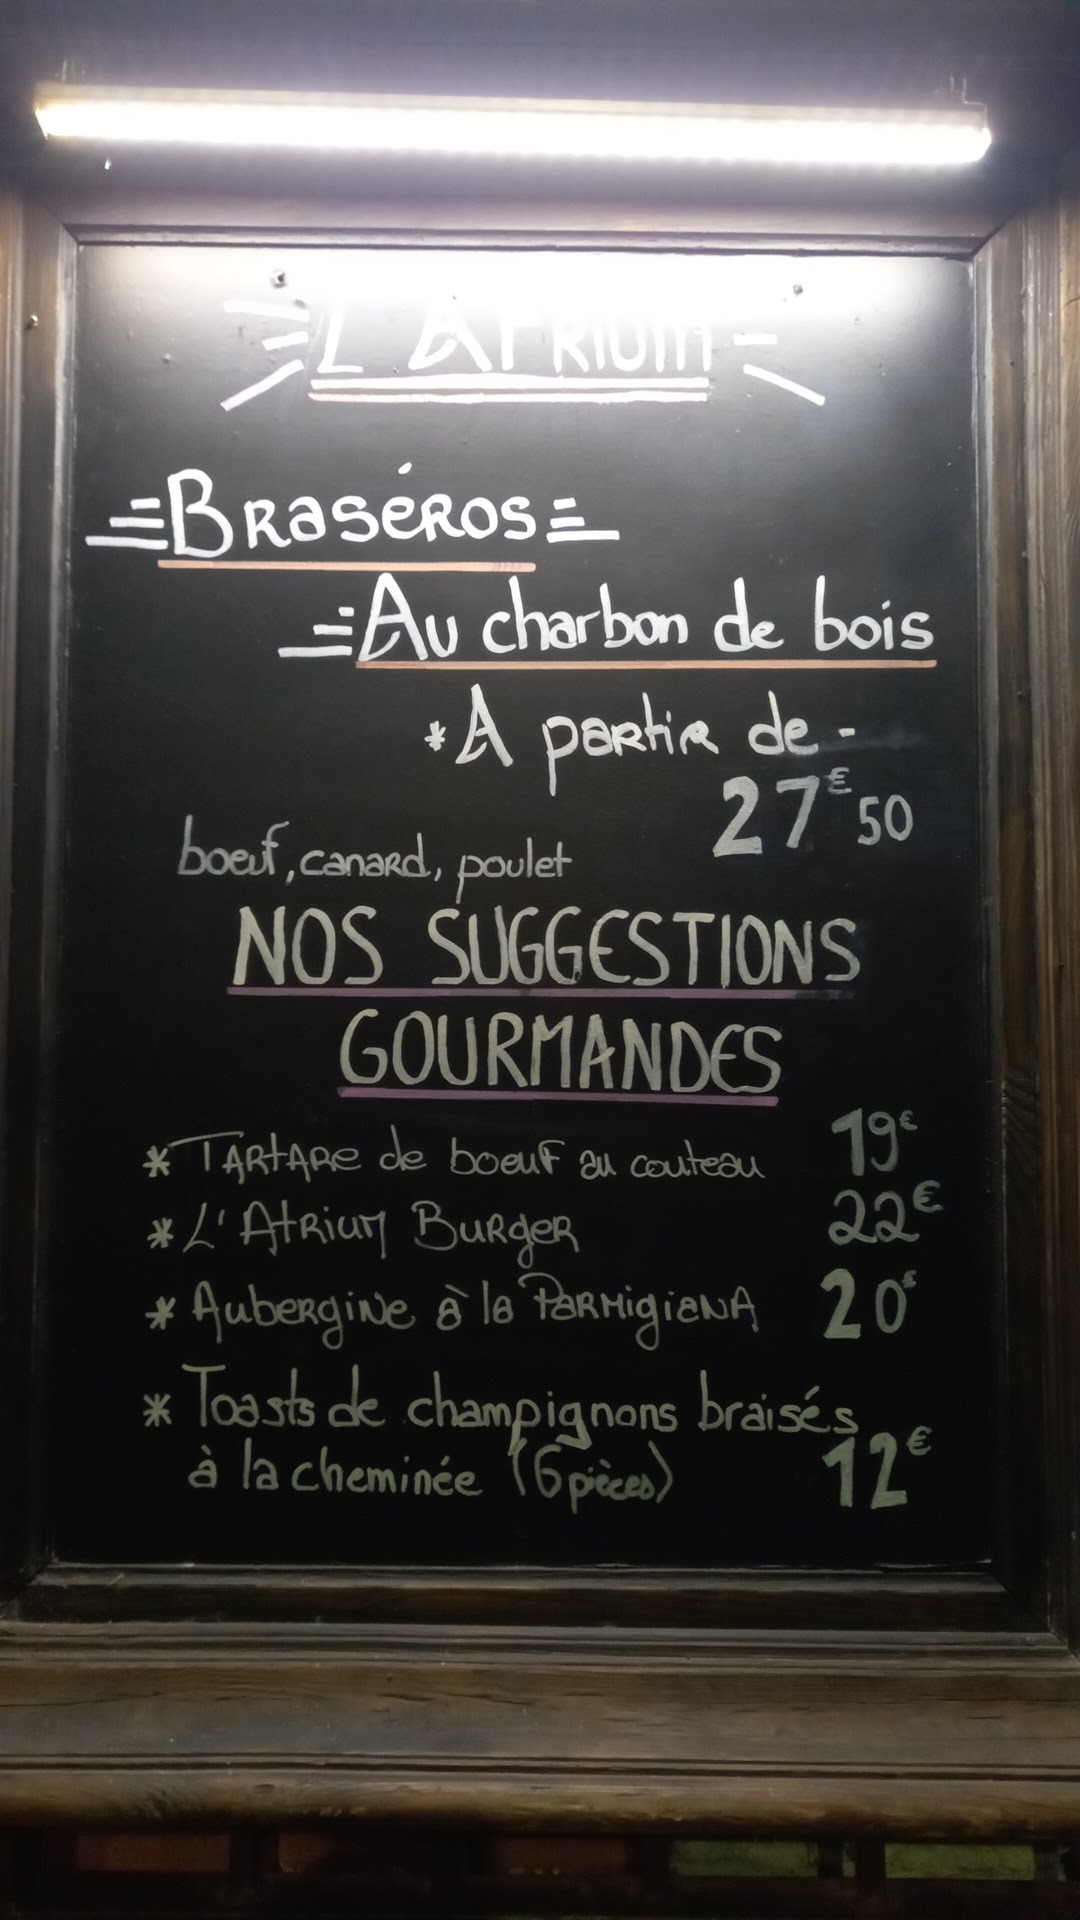 L'ATRIUM
BRASÉROS
AU charbon de bois
*A partir de -
27€50
boeuf, canard, poulet
NOS SUGGESTIONS
GOURMANDES
* TARTARE de boeuf au couteau 19€
* L'Atrium Burger 22€
* Aubergine à la Parmigiana 20€
* Toasts de champignons braisés
à la cheminée (6 pièces) 12€